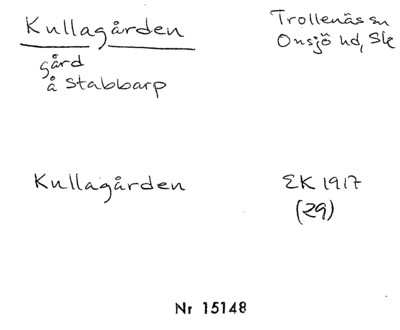 Kullagården
Trollenäs sn
Onsjö hd, Sk
gård
å Stabbarp
Kullagården
EK 1917
(29)
Nr 15148